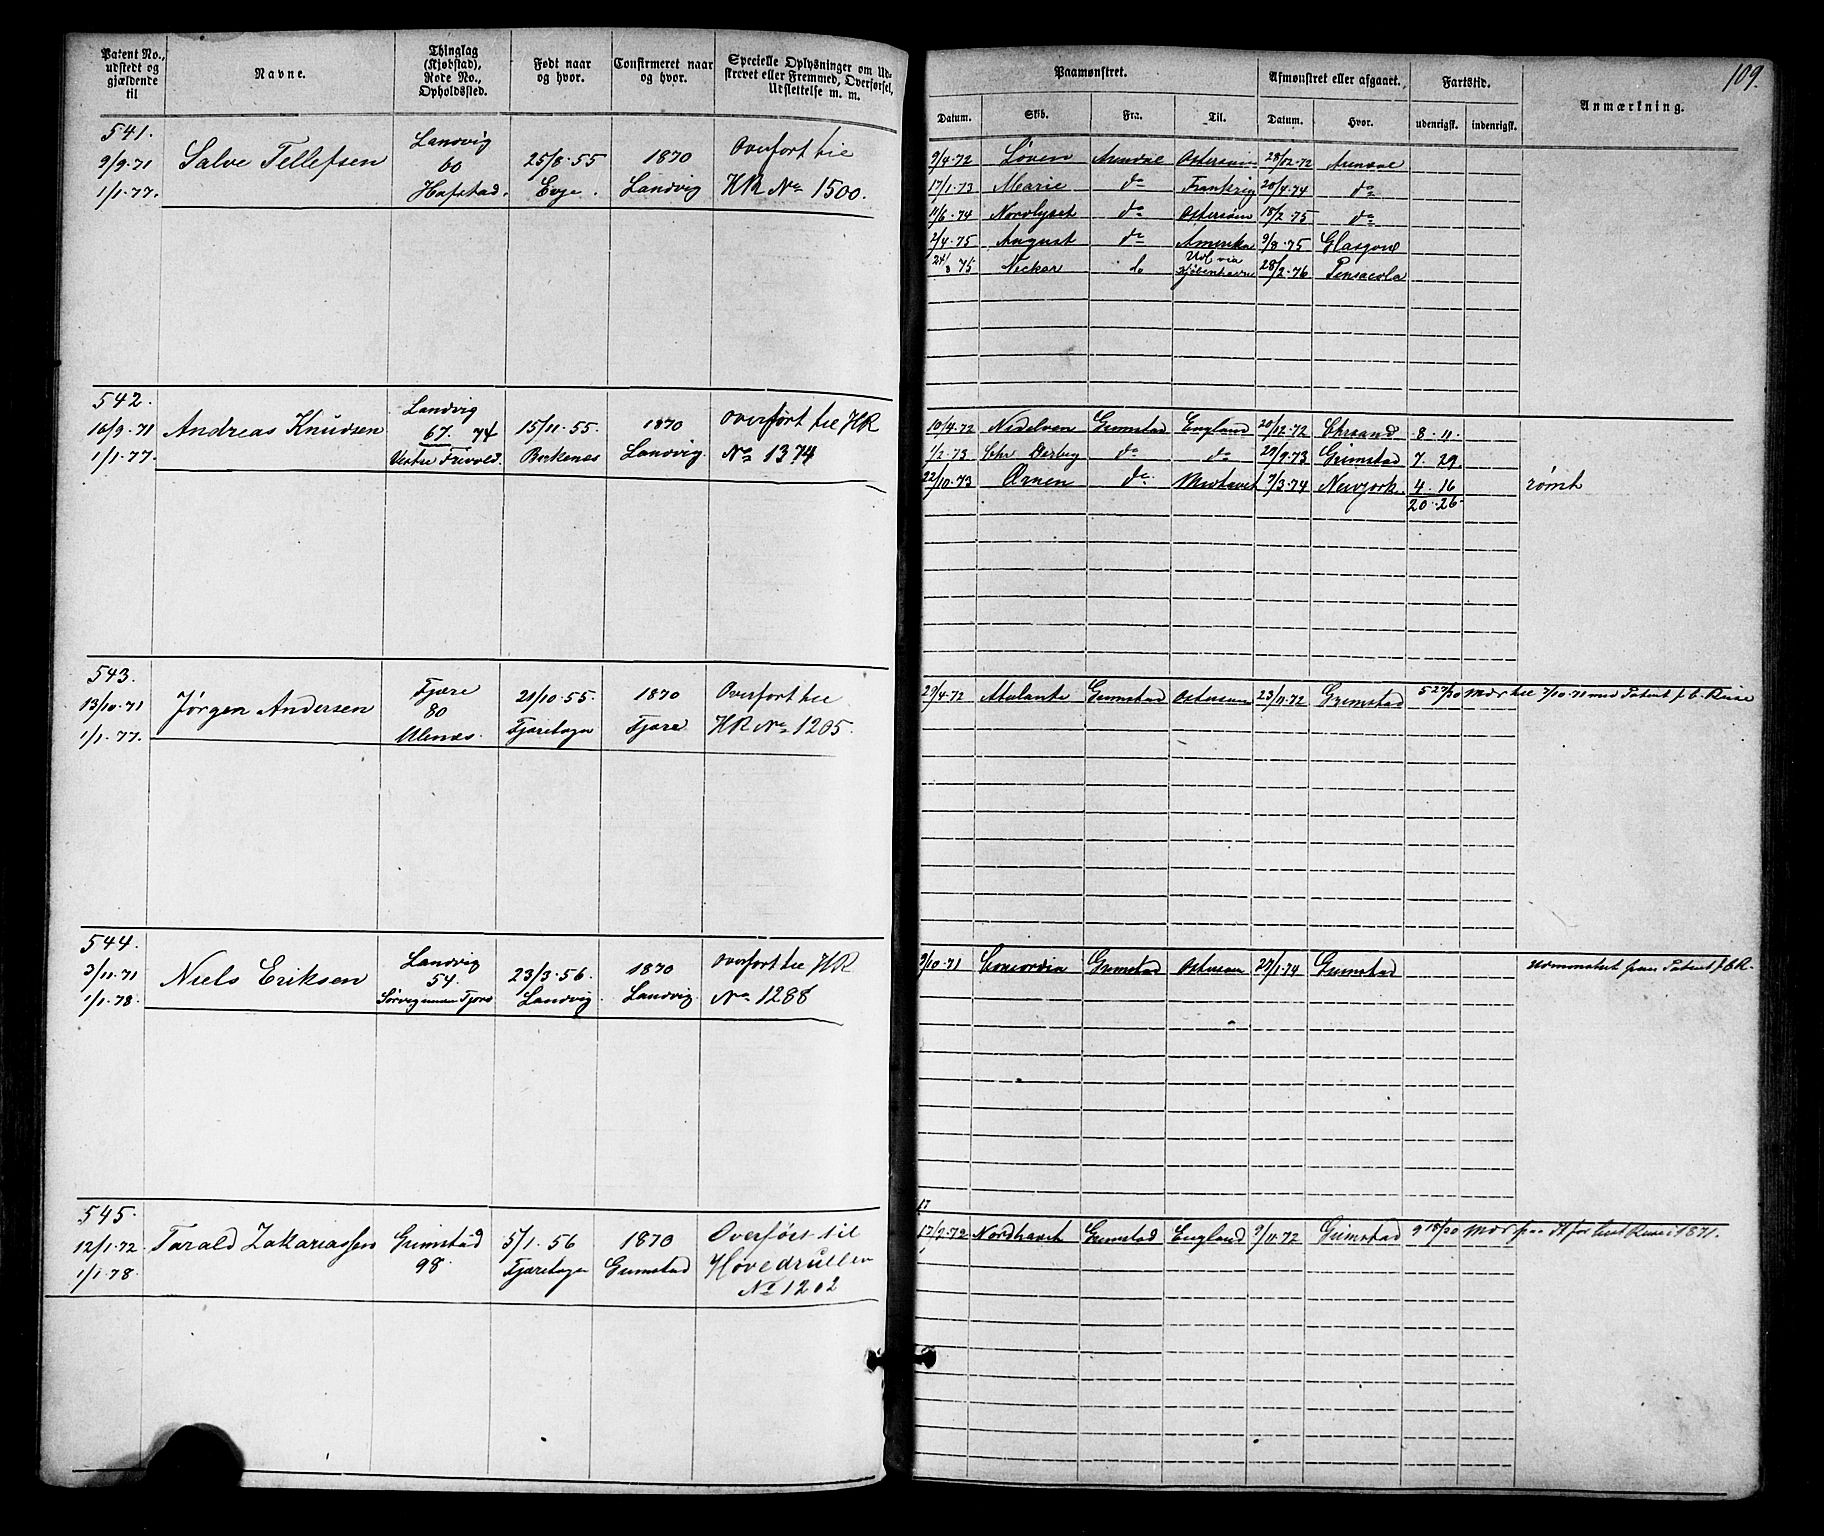 Patent No., udstedt og gjældende til
Navne.
Thinglag (Kjøbstad), Rode No., Opholdssted.
Født naar og hvor.
Confirmeret naar og hvor.
Specielle Oplysninger om Udskrevet eller Fremmed, Overførsel, Udslettelse m. m.
Paamønstret.
Afmønstret eller afgaaet.
Fartstid.
Anmærkning.
109.
Datum. Skib. Fra. Til. Datum. Hvor. udenrigsk. indenrigsk.
541.
9/9.71
1/1.77.
Salve Tellefsen
Landvig
60
Hafstad.
25/8.55
Evje.
1870
Landvig
Overført til
HR No 1500.
9/4.72 Løven Arendal Østersøen 28/12.72 Arendal
17/1.73 Marie do Frankrig 20/4.74 do
11/6.74 Nordlyset do Østersøen 18/2.75 do
2/4.75 August do Amerika 9/8.75 Glasgow
24/8 75 Neckar do Udl via Kjøbenhavn 28/2.76 Pensacola
542.
16/9.71
1/1.77.
Andreas Knudsen
Landvig
67. 74
Vestre Frivold.
15/11.55.
Birkenes
1870
Landvig.
Overført til HR
No 1374
10/4.72 Nidelven Grimstad England 20/12.72 Chrsand 8. 11.
1/2.73 Chr Derbey do do 29/9.73 Grimstad 7. 29.
22/10.73 Ørnen do 7/3.74 Newyork. 4. 16 rømt
20.26
543.
13/10.71
1/1.77.
Jørgen Andersen
Fjære
80
Ulenæs.
21/10.55.
Fjæretogn
1870
Fjære
Overført til
HR No 1205.
29/4.72 Atalante Grimstad Østersøen 23/11.72 Grimstad 5 27/30
544.
3/11.71
1/1.78.
Niels Eriksen
Landvig
54.
23/3.56.
Landvig.
1870
Landvig.
Overført til HR
No 1288
9/10.71 Concordia Grimstad Østersøen 27/1.74 Grimstad
17
545.
12/1.72
1/1.78.
Tarald Zakariassen
Grimstad
98.
5/1.56
Fjæretogn
1870
Grimstad
Overført til
Hovedrullen
No 1202
17/2.72 Nordhavet Grimstad England 9/11.72 Grimstad 9 18/30